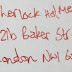 Sherlock Holmes
221b Baker Str
London NW1 6